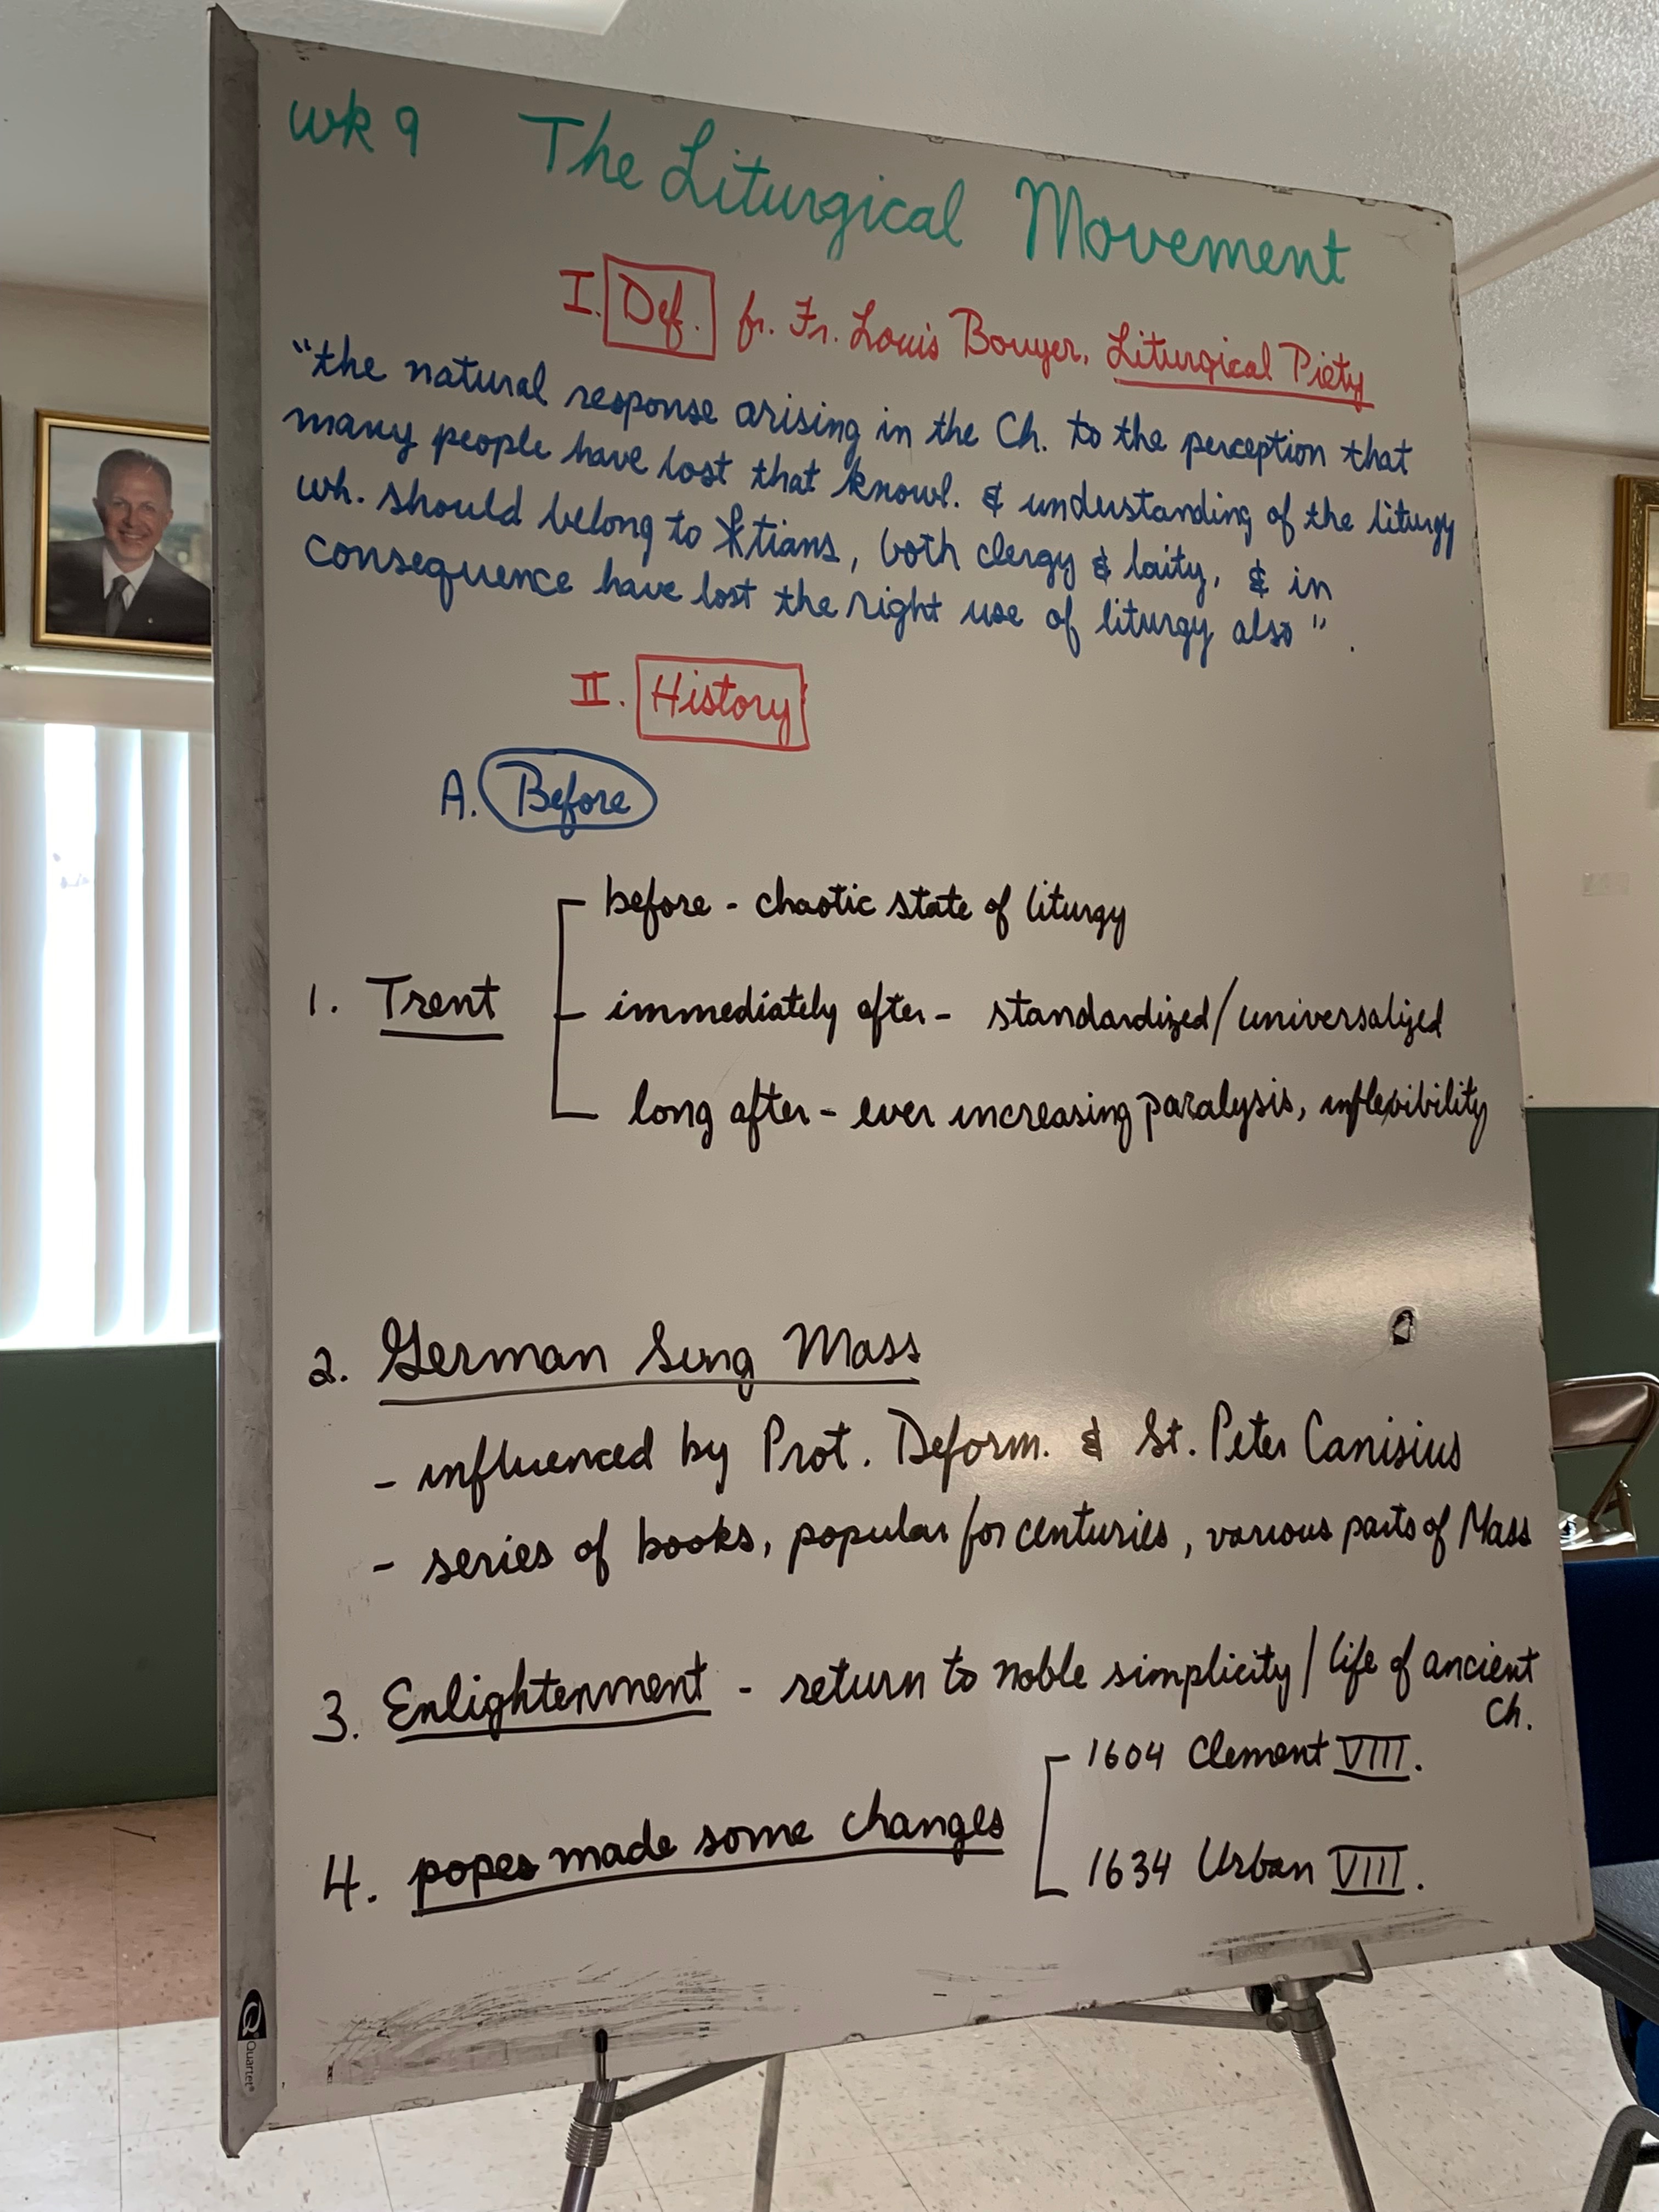 wk 9 The Liturgical Movement
I. Def. fr. Fr. Louis Bouyer, Liturgical Piety
"the natural response arising in the Ch. to the perception that
many people have lost that knowl. & understanding of the liturgy
wh. should belong to Xtians, both clergy & laity, & in
consequence have lost the right use of liturgy also".
II. History
A. Before
before - chaotic state of liturgy
1. Trent
immediately after - standardized/universalized
long after - ever increasing paralysis, inflexibility
2. German Sung Mass
- influenced by Prot. Deform. & St. Peter Canisius
- series of books, popular for centuries, various parts of Mass
3. Enlightenment - return to noble simplicity/life of ancient
Ch.
1604 Clement VIII.
4. popes made some changes
1634 Urban VIII.
Quartet®